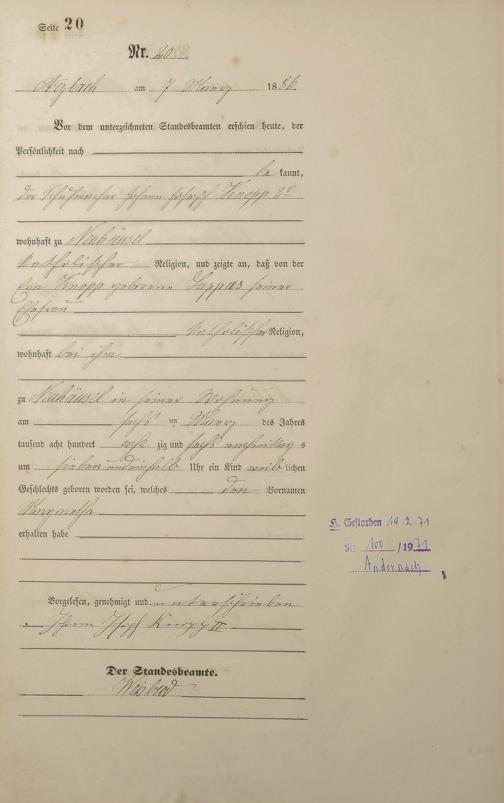 Seite 20
Nr. 20
Arzbach am 7 Maerz 1886.
Vor dem unterzeichneten Standesbeamten erschien heute, der
Persönlichkeit nach
be kannt,
der Schuhmacher Johann Joseph Knopp 2r
wohnhaft zu Neuhäusel
katholischer Religion, und zeigte an, daß von der
Knopp geborene seiner
Ehefrau
katholischer Religion,
wohnhaft bei ihm
zu Neuhäusel in seiner Wohnung
am sechs ten Maerz des Jahres
tausend acht hundert acht zig und sechs nachmittags
um sieben und einhalb Uhr ein Kind weib lichen
Geschlechts geboren worden sei, welches den Vornamen
Margaretha
erhalten habe
Vorgelesen, genehmigt und unterschrieben
Johann Josef Knopp II
Der Standesbeamte.
Weisbrod
Gestorben 19.2.71
Nr. 100 / 1971
Andernach